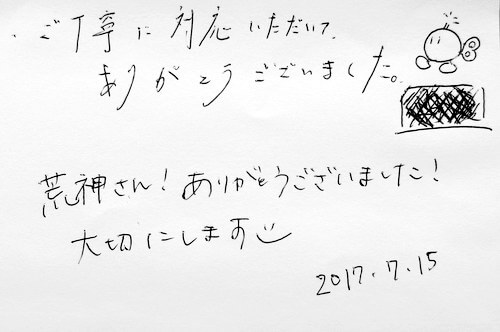 ご丁寧に対応いただいて、
ありがとうございました。
荒神さん！ありがとうございました！
大切にします
2017.7.15